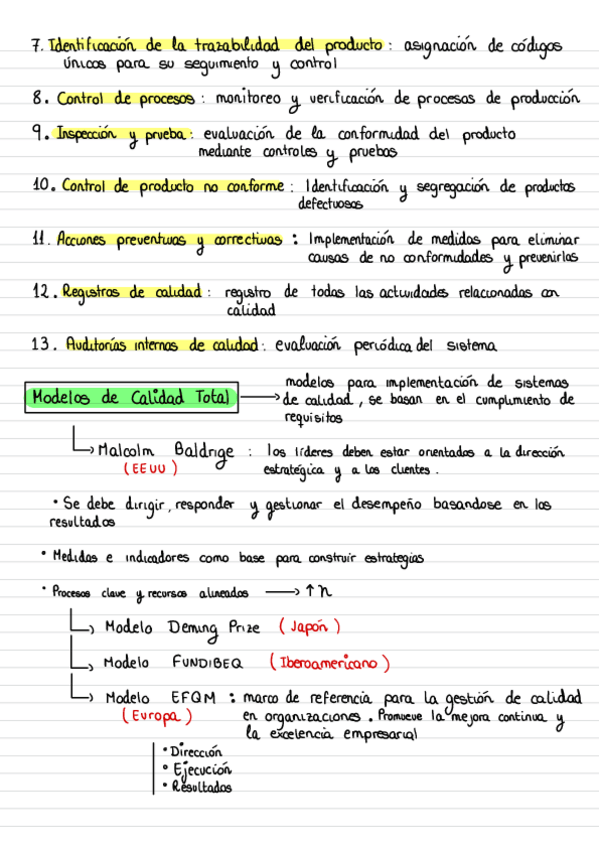 7. Identificación de la trazabilidad del producto: asignación de códigos
únicos para su seguimiento y control
8. Control de procesos: monitoreo y verificación de procesos de producción
9. Inspección y prueba: evaluación de la conformidad del producto
mediante controles y pruebas
10. Control de producto no conforme: Identificación y segregación de productos
defectuosos
11. Acciones preventivas y correctivas: Implementación de medidas para eliminar
causas de no conformidades y prevenirlas
12. Registros de calidad: registro de todas las actividades relacionadas con
calidad
13. Auditorías internas de calidad: evaluación periódica del sistema
Modelos de Calidad Total → modelos para implementación de sistemas
de calidad, se basan en el cumplimiento de
requisitos
Malcolm Baldrige: los líderes deben estar orientados a la dirección
(EEUU) estratégica y a los clientes.
• Se debe dirigir, responder y gestionar el desempeño basandose en los
resultados
• Medidas e indicadores como base para construir estrategias
• Procesos clave y recursos alineados → ↑ n
Modelo Deming Prize (Japón)
Modelo FUNDIBEQ (Iberoamericano)
Modelo EFQM: marco de referencia para la gestión de calidad
(Europa) en organizaciones. Promueve la mejora continua y
la excelencia empresarial
• Dirección
• Ejecución
• Resultados